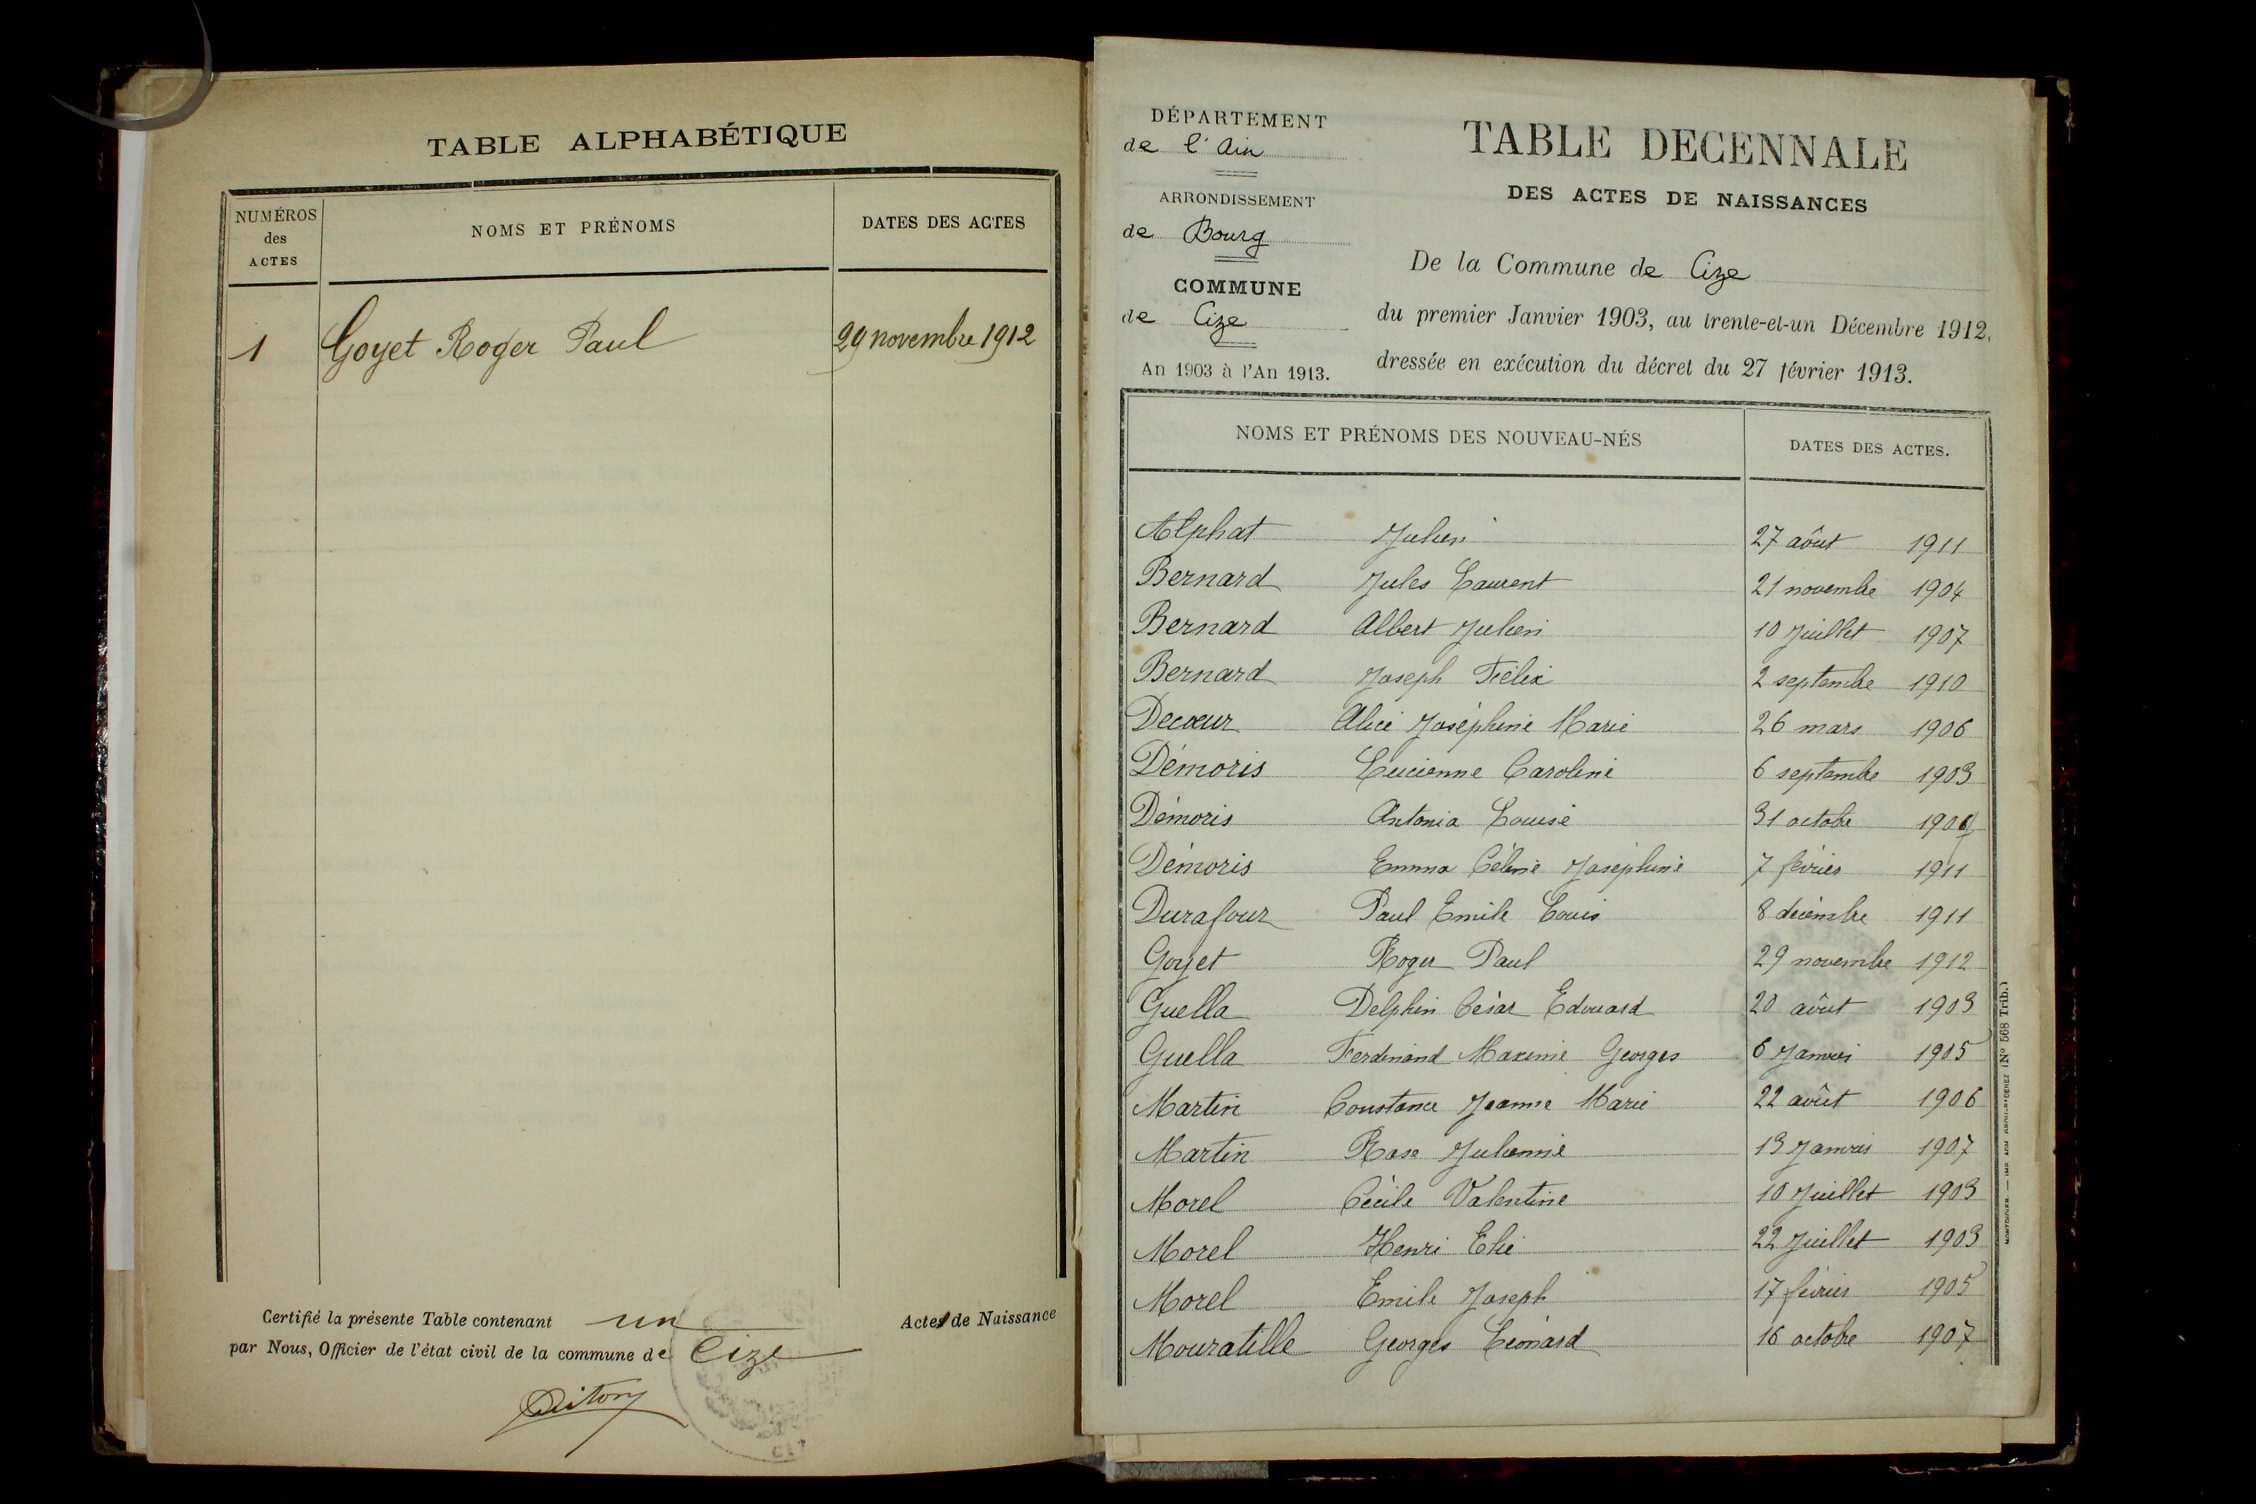 TABLE ALPHABÉTIQUE
NUMÉROS des ACTES
NOMS ET PRÉNOMS
DATES DES ACTES
1 Goyet Roger Paul 29 novembre 1912
Certifié la présente Table contenant un Acte de Naissance
par Nous, Officier de l'état civil de la commune de Cize
DÉPARTEMENT
de l'Ain
ARRONDISSEMENT
de Bourg
COMMUNE
de Cize
An 1903 à l'An 1913.
TABLE DECENNALE
DES ACTES DE NAISSANCES
De la Commune de Cize
du premier Janvier 1903, au trente-et-un Décembre 1912,
dressée en exécution du décret du 27 février 1913.
NOMS ET PRÉNOMS DES NOUVEAU-NÉS
DATES DES ACTES.
Alphat Julien 27 aôut 1911
Bernard Jules Laurent 21 novembre 1904
Bernard Albert Julien 10 Juillet 1907
Bernard Joseph Félix 2 septembre 1910
Decœur Alice Joséphine Marie 26 mars 1906
Démoris Lucienne Caroline 6 septembre 1903
Démoris Antonia Louise 31 octobre
Démoris Emma Céline Joséphine 7 février 1911
Durafour Paul Emile Louis 8 décembre 1911
Goyet Roger Paul 29 novembre 1912
Guella Delphin César Edouard 20 aôut 1903
Guella Ferdinand Maxime Georges 6 Janvier 1905
Martin Constance Jeanne Marie 22 aôut 1906
Martin Rose Julienne 13 Janvier 1907
Morel Cécile Valentine 10 Juillet 1903
Morel Henri Elie 22 Juillet 1903
Morel Emile Joseph 17 février 1905
Mouratille Georges Léonard 16 octobre 1907
(N° 568 Trib.)